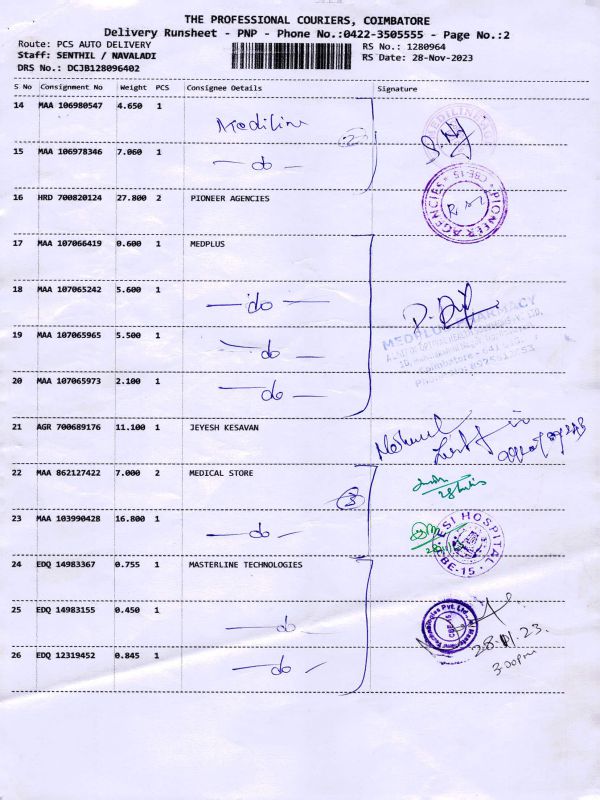 THE PROFESSIONAL COURIERS, COIMBATORE
Delivery Runsheet - PNP - Phone No.:0422-3505555 - Page No.:2
Route: PCS AUTO DELIVERY RS No.: 1280964
Staff: SENTHIL / NAVALADI RS Date: 28-Nov-2023
DRS No.: DCJB128096402
S No Consignment No Weight PCS Consignee Details Signature
14 MAA 106980547 4.650 1 Mediline
15 MAA 106978346 7.060 1 — do —
16 HRD 700820124 27.800 2 PIONEER AGENCIES
PIONEER AGENCIES CBE-15
17 MAA 107066419 0.600 1 MEDPLUS
18 MAA 107065242 5.600 1 — do —
19 MAA 107065965 5.500 1 — do —
20 MAA 107065973 2.100 1 — do —
21 AGR 700689176 11.100 1 JEYESH KESAVAN
22 MAA 862127422 7.000 2 MEDICAL STORE
3
23 MAA 103990428 16.800 1 — do —
ESI HOSPITAL CBE-15
24 EDQ 14983367 0.755 1 MASTERLINE TECHNOLOGIES
25 EDQ 14983155 0.450 1 — do —
28.11.23
3.00pm
26 EDQ 12319452 0.845 1 — do —